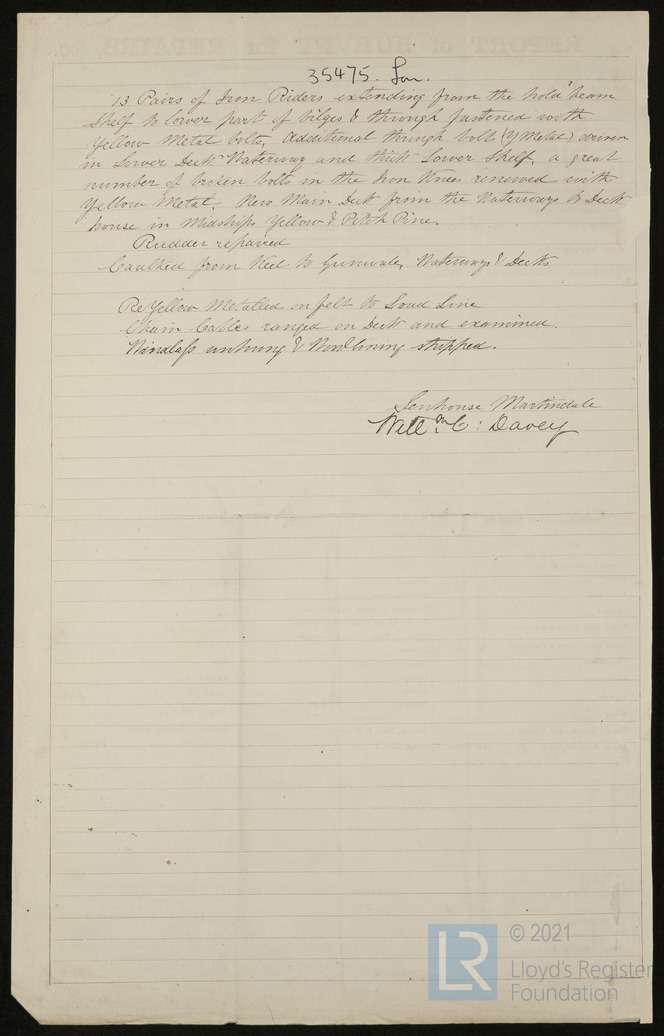 35475. Lon.
13 Pairs of Iron Riders extending from the hold beam
Shelf to lower part of bilges & through fastened with
Yellow Metal bolts, Additional through bolts (Y Metal) driven
in Lower Deck Waterway and thick Lower Shelf, a great
number of broken bolts in the Iron Knees renewed with
Yellow Metal. New Main Deck from the Waterways to Deck
house in Midships Yellow & Pitch Pine.
Rudder repaired
Caulked from Keel to Gunwale, Waterways & Decks
ReYellow Metalled on felt to Load Line
Chain Cables ranged on Deck and examined.
Windlass unhung & Woodlining stripped.
Senhouse Martindale
Willm C: Davey
LR
© 2021
Lloyd's Register
Foundation